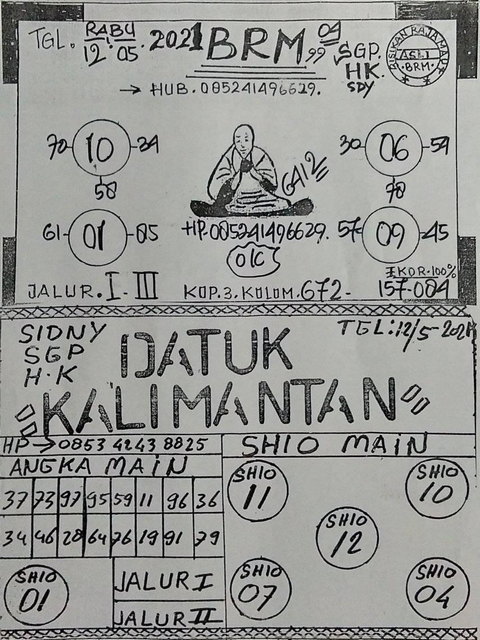 TGL. RABU 12.05. 2021 BRM.99 04
SGP.
HK.
SDY
BISIKAN RAJA MAUT
ASLI
BRM
→ HUB. 085241496629.
70 10 34
58
30 06 59
78
6412
61 01 85
HP.085241496629.
57 09 45
OIC
JALUR. I - III
KOP.3.KOLOM.672-
IEKOR.100%
157-084
SIDNY
SGP
H.K
TGL:12/5-2021
DATUK
KALIMANTAN
HP → 0853 4243 8825
ANGKA MAIN
37 73 97 95 59 11 96 36
34 46 28 64 76 19 91 79
SHIO 01
JALUR I
JALUR II
SHIO MAIN
SHIO 11
SHIO 10
SHIO 12
SHIO 07
SHIO 04